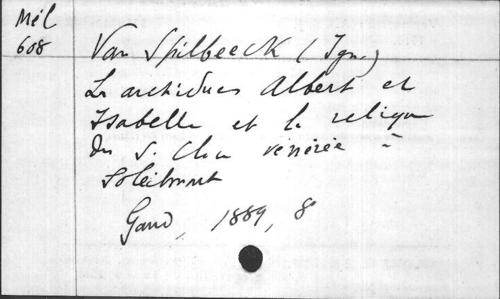 Mél
608
Van Spilbeeck (Ign.)
Les archiducs Albert et
Isabelle et la relique
du S. Clou vénérée à
Gand, 1889, 8°